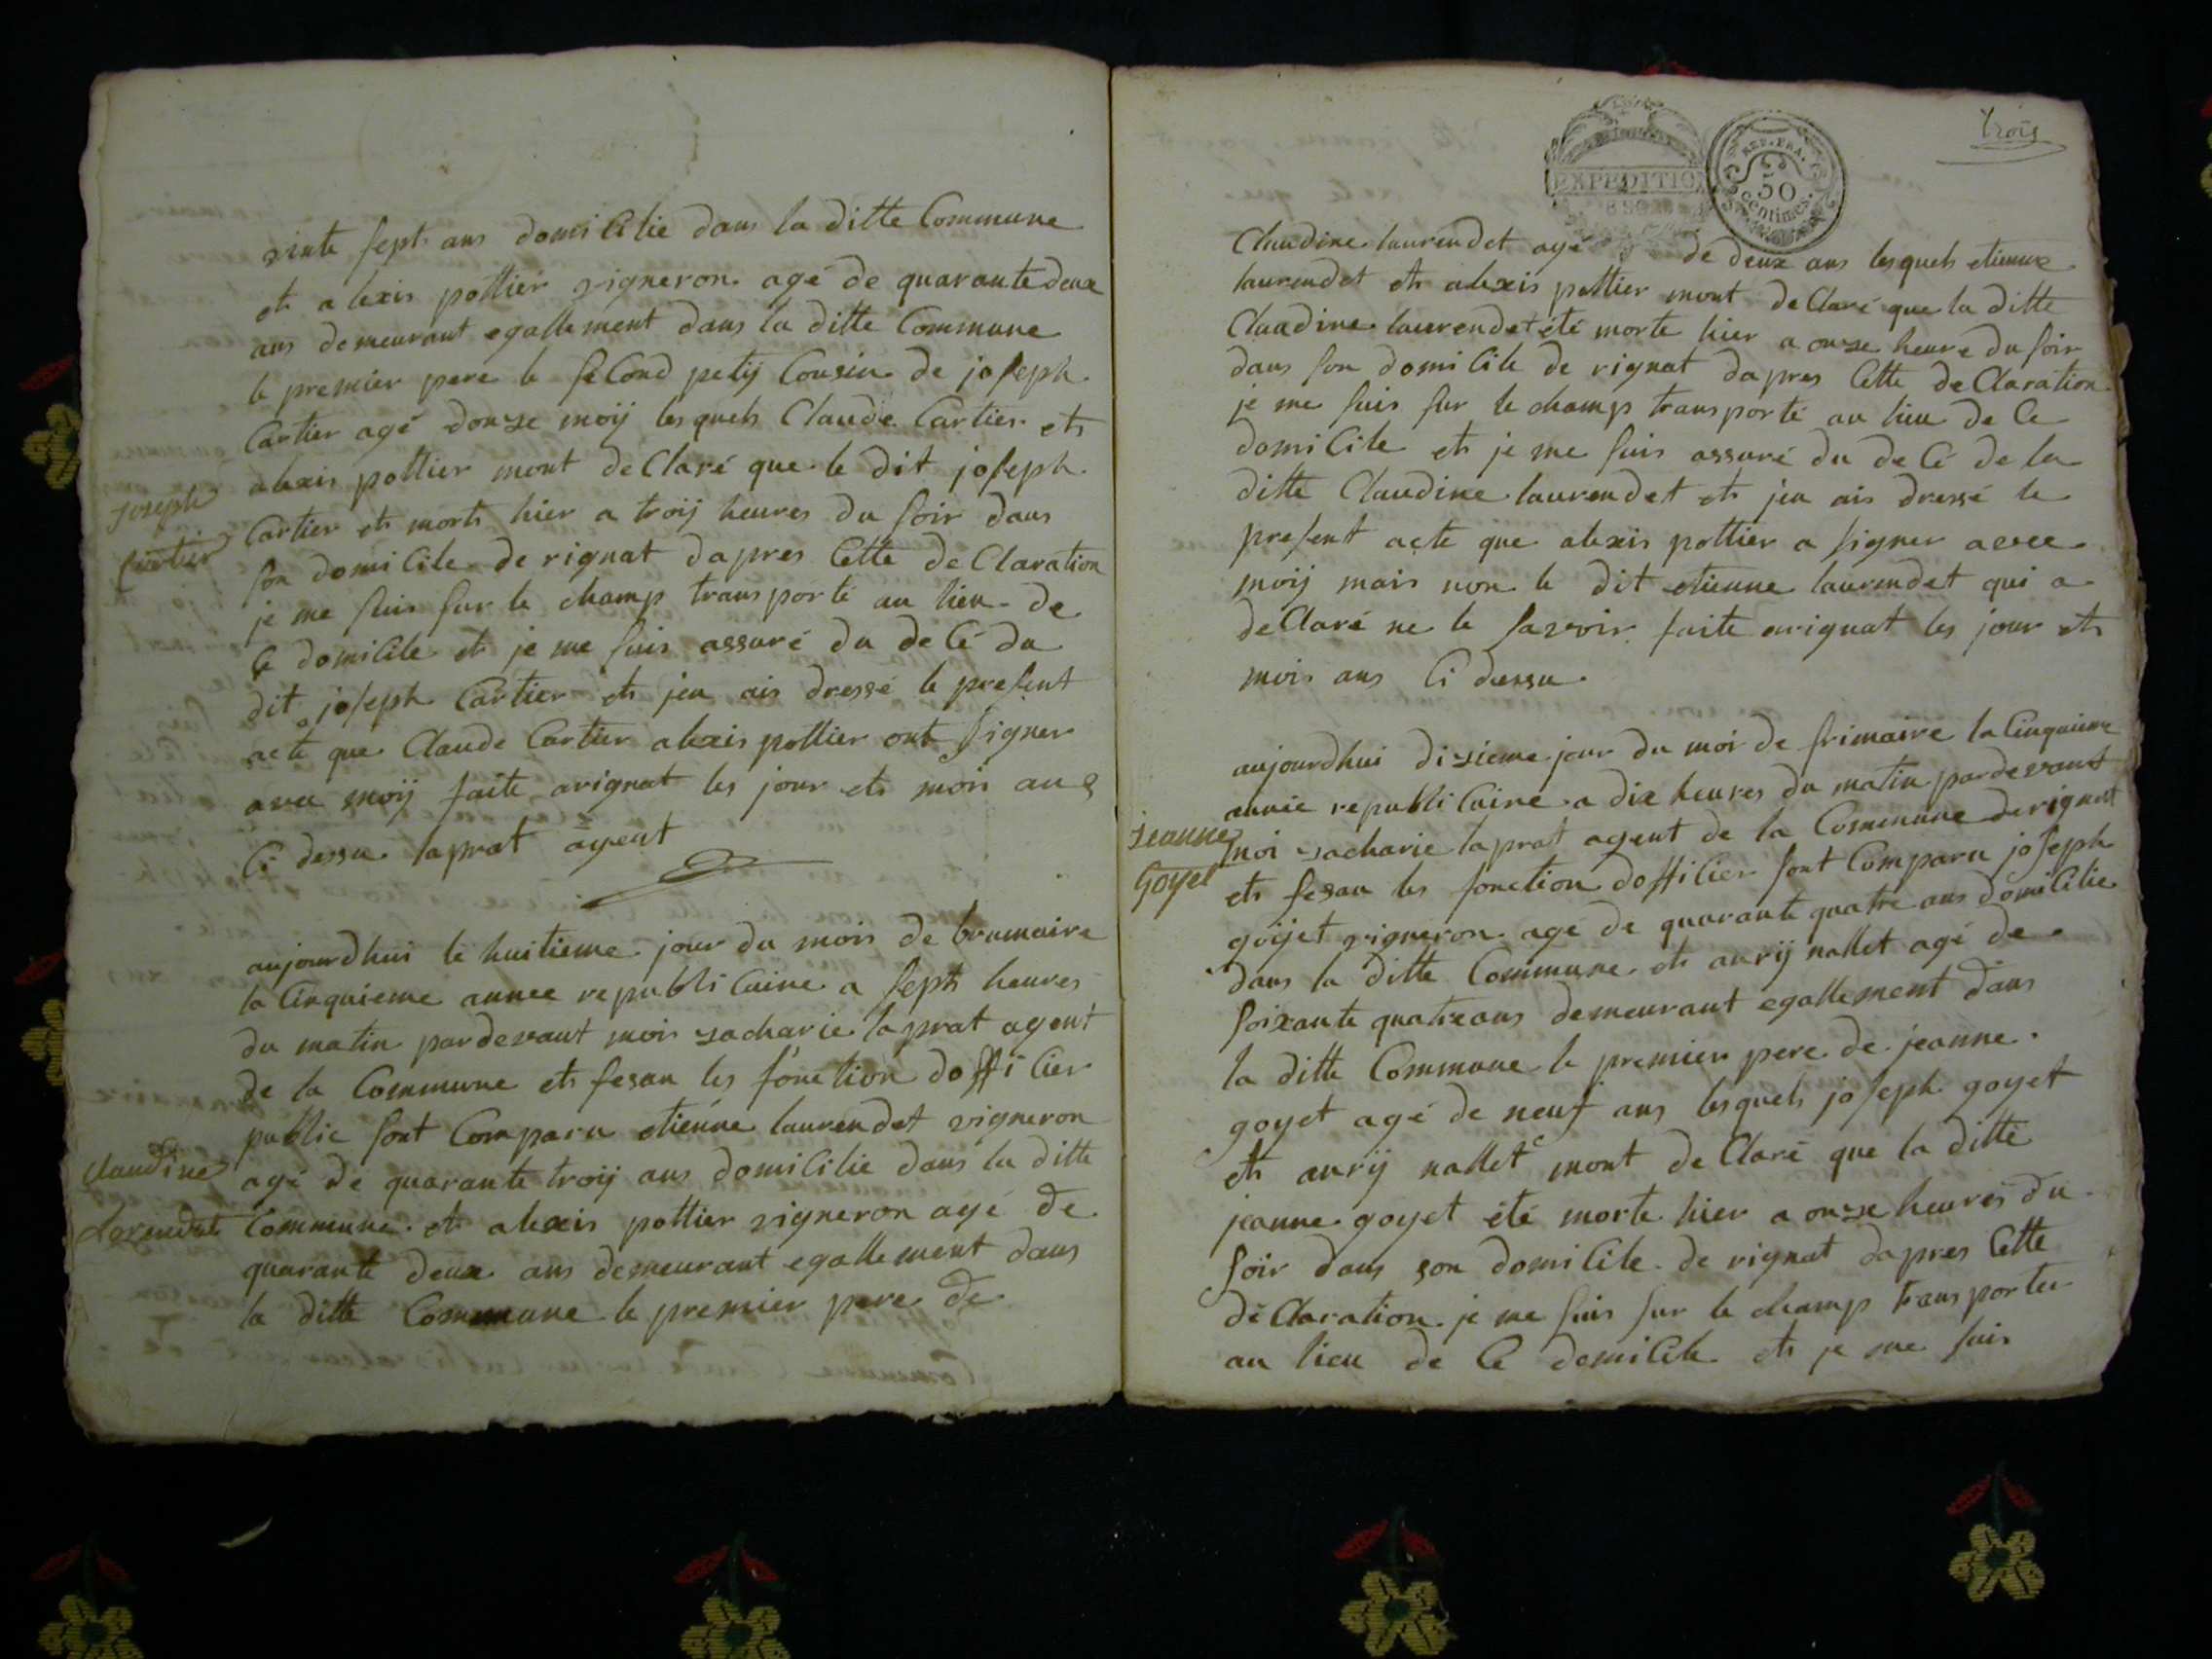 vinte sept ans domicilié dans la ditte Commune
et alexis pottier vigneron agé de quarante deux
ans demeurant egallement dans la ditte Commune
le premier pere le second petij Cousin de joseph
Cartier agé donze moij lesquels Claude Cartier et
alexis pottier mont declaré que le dit joseph
Joseph
Cartier
Cartier et morts hier a troij heures du soir dans
son domicile de rignat dapres Cette declaration
je me suis sur le champ transporté au lieu de
Ce domicile et je me suis assuré du decé du
dit joseph Cartier et jen ais dressé le present
acte que Claude Cartier alexis pottier ont signer
avec moij faite arignat les jour et mois ans
Ci dessu laprat agent
aujourdhui le huitieme jour du mois de brumaire
la Cinquieme annee republicaine a septs heures
du matin pardevant mois zacharie laprat agent
de la Commune et fesan les fonction dofficier
public sont Comparu etiénne laurendet vigneron
Claudine
agé de quarante troij ans domicilié dans la ditte
Commune et alexis pottier vigneron agé de
quarante deux ans demeurant egallement dans
la ditte Commune le premier pere de
trois
EXPEDITION
REP. FRA.
50
centimes
Claudine laurendet agé de deux ans lesquels etienne
laurendet et alexis pottier mont declaré que la ditte
Claudine laurendet été morte hier a onze heure du soir
dans son domicile de rignat dapres Cette declaration
je me suis sur le champs transporté au lieu de Ce
domicile et je me suis assuré du decé de la
ditte Claudine laurendet et jen ais dressé le
present acte que alexis pottier a signer avec
moij mais non le dit etienne laurendet qui a
declaré ne le savoir faite arignat les jour et
mois ans Ci dessu
aujourdhui dizieme jour du moi de frimaire la Cinquieme
année republicaine a dix heures du matin pardevant
Jeanne
Goyet
moi zacharie laprat agent de la Commune derignat
et fesan les fonction dofficier sont Comparu joseph
goyet vigneron agé de quarante quatre ans domicilié
dans la ditte Commune et anrij nallet agé de
soixante quatre ans demeurant egallement dans
la ditte Commune le premier pere de jeanne
goyet agé de neuf ans lesquels joseph goyet
et anrij nallet mont declaré que la ditte
jeanne goyet été morte hier a onze heures du
soir dans son domicile de rignat dapres Cette
declaration je me suis sur le champ transporter
au lieu de Ce domicile et je me suis